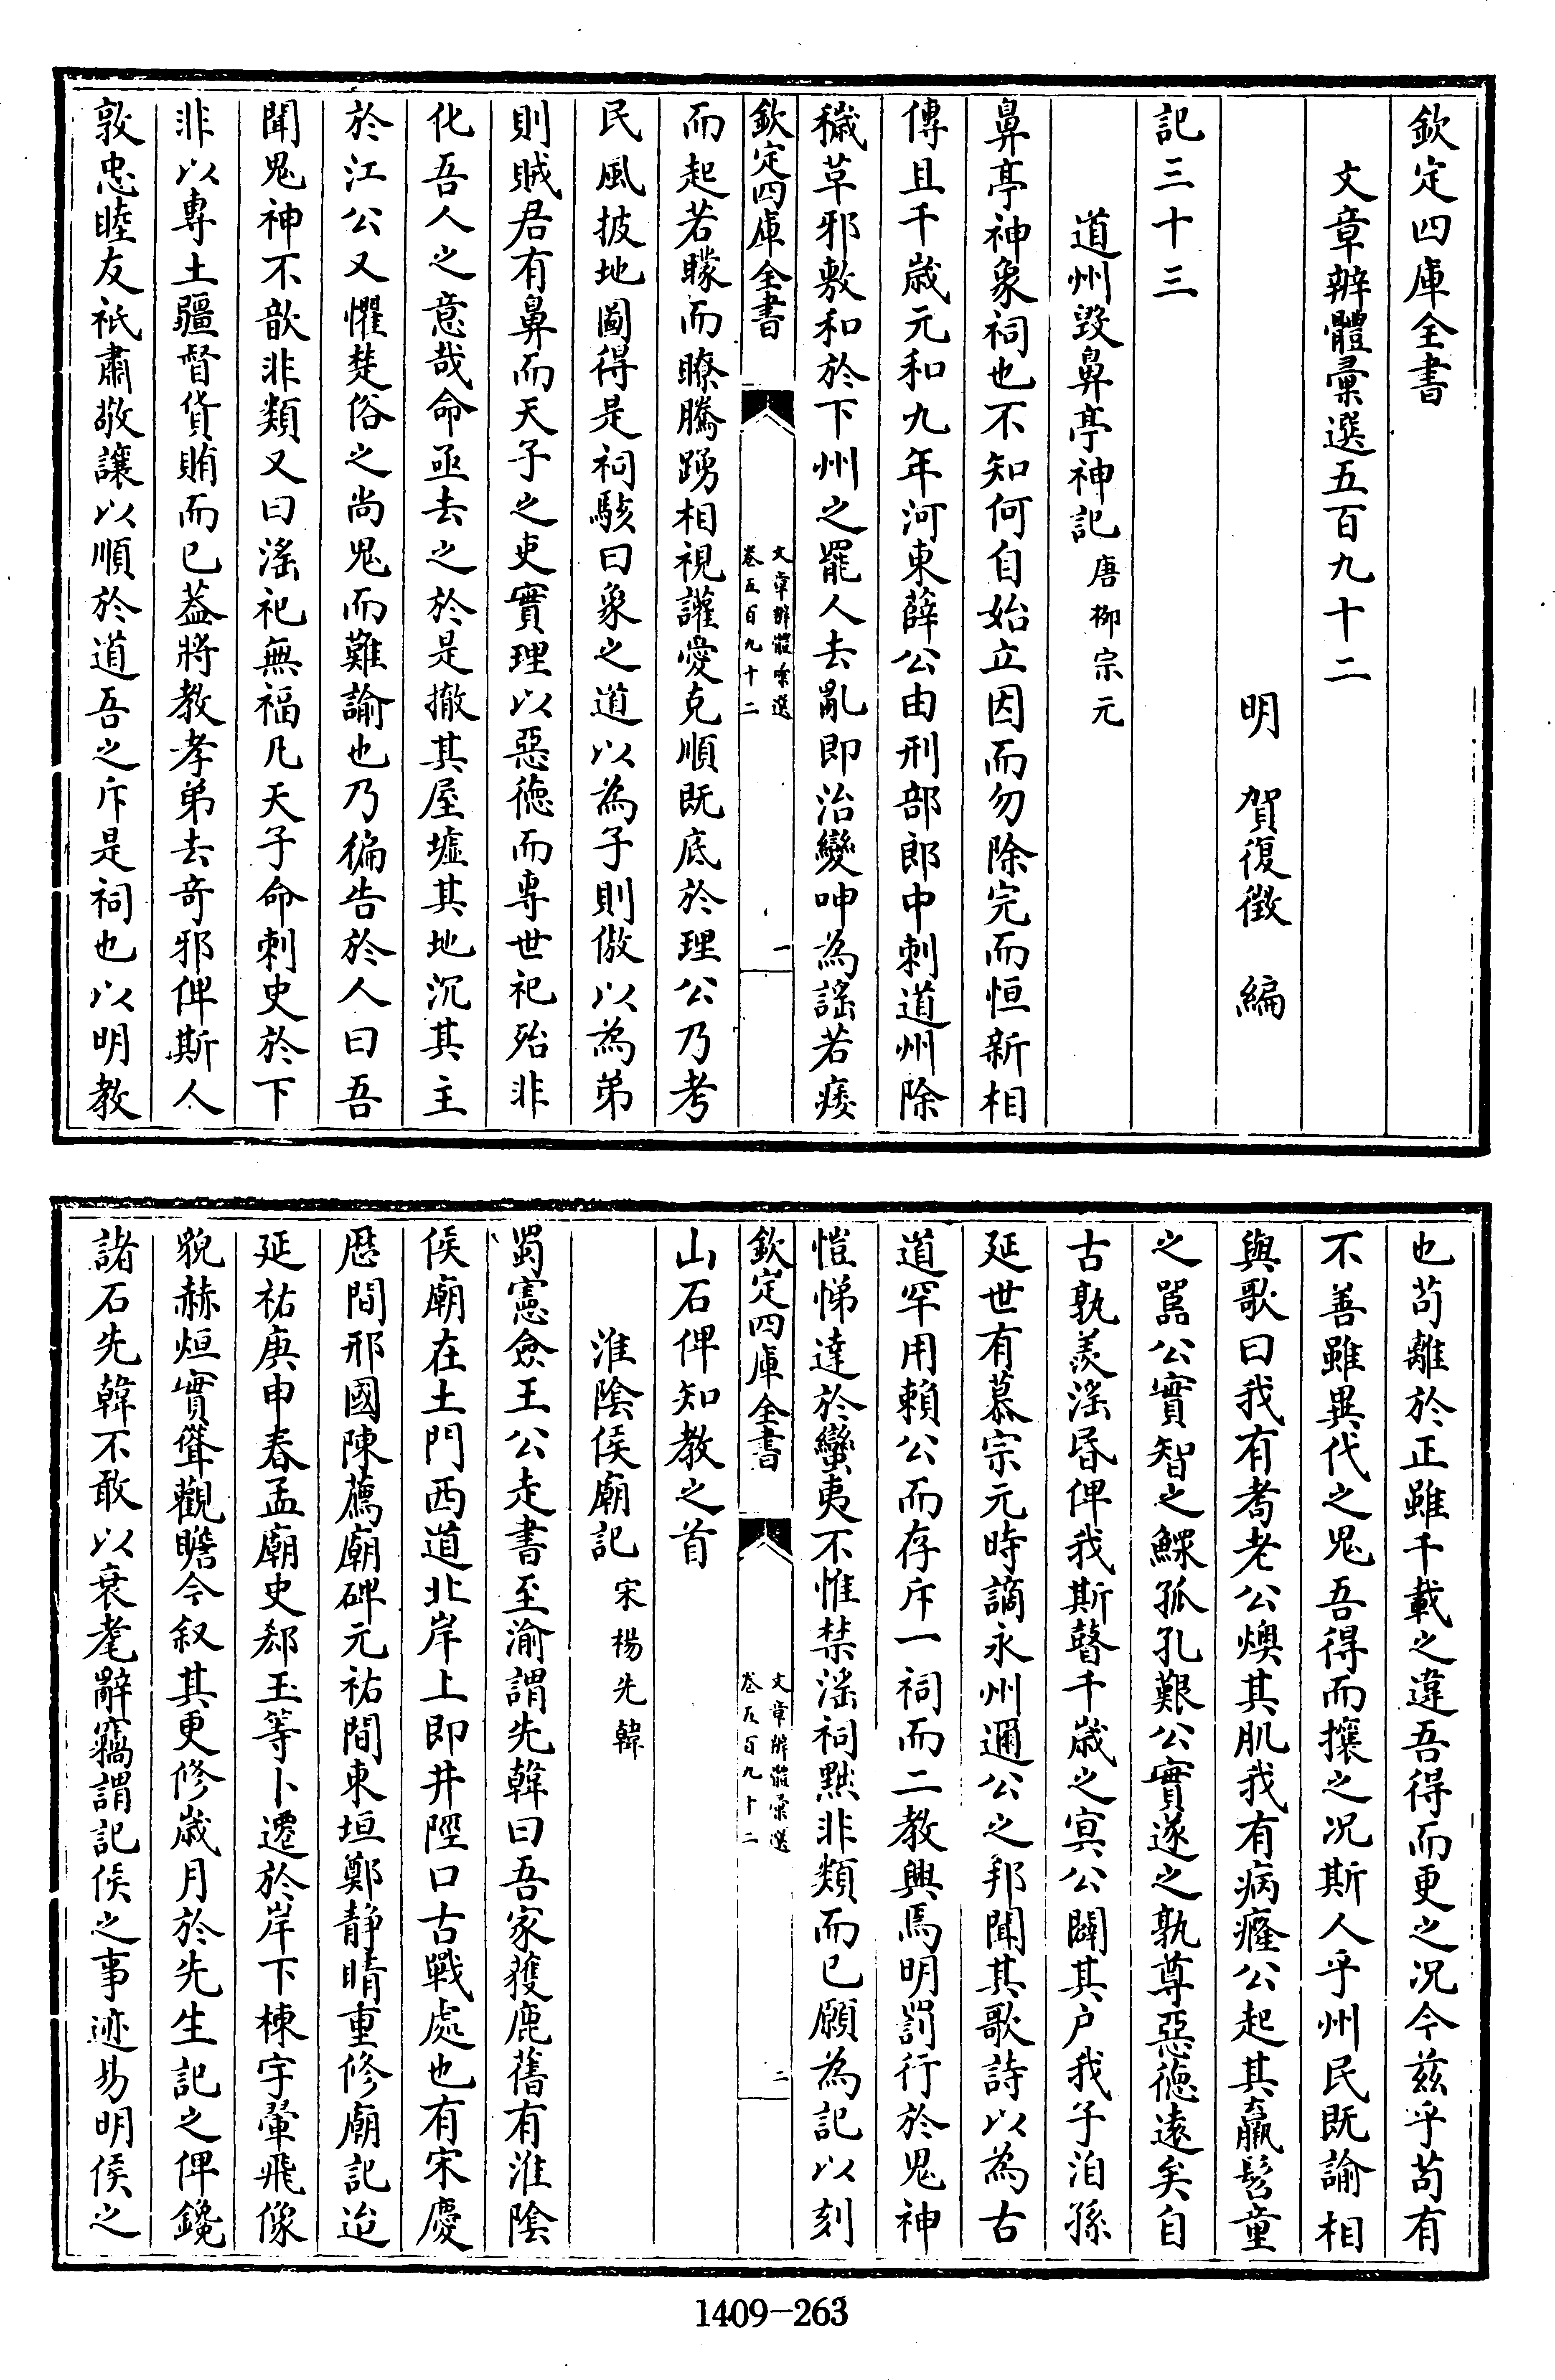 欽定四庫全書
文章辨體彙選五百九十二
明　賀復徵　編
記三十三
道州毀鼻亭神記唐柳宗元
鼻亭神象祠也不知何自始立因而勿除完而恒新相
傳且千歲元和九年河東薛公由刑部郎中刺道州除
穢草邪敷和於下州之罷人去亂即治變呻為謡若痿
欽定四庫全書
文章辨體彙選
卷五百九十二
一
而起若矇而瞭騰踴相視讙愛克順既底於理公乃考
民風披地圖得是祠駭曰象之道以為子則傲以為弟
則賊君有鼻而天子之吏實理以惡德而專世祀殆非
化吾人之意哉命亟去之於是撤其屋墟其地沉其主
於江公又懼楚俗之尚鬼而難諭也乃徧告於人曰吾
聞鬼神不歆非類又曰淫祀無福凡天子命刺史於下
非以專土疆督貨賄而已葢將教孝弟去奇邪俾斯人
敦忠睦友祇肅敬讓以順於道吾之斥是祠也以明教
也苟離於正雖千載之違吾得而更之况今兹乎苟有
不善雖異代之鬼吾得而攘之况斯人乎州民既諭相
與歌曰我有耉老公燠其肌我有病癃公起其羸髫童
之嚚公實智之鰥孤孔艱公實遂之孰尊惡德遠矣自
古孰羨淫昏俾我斯瞽千歲之冥公闢其户我子洎孫
延世有慕宗元時謫永州邇公之邦聞其歌詩以為古
道罕用賴公而存斥一祠而二教興焉明罰行於鬼神
愷悌達於蠻夷不惟禁淫祠黜非類而已願為記以刻
欽定四庫全書
文章辨體彙選
卷五百九十二
二
山石俾知教之首
淮陰侯廟記宋楊先韓
蜀憲僉王公走書至渝謂先韓曰吾家獲鹿舊有淮陰
侯廟在土門西道北岸上即井陘口古戰處也有宋慶
歴間邢國陳薦廟碑元祐間東垣鄭静晴重修廟記迨
延祐庚申春孟廟史郄玉等卜遷於岸下棟宇翬飛像
貌赫烜實聳觀瞻今叙其更修歲月於先生記之俾鑱
諸石先韓不敢以衰耄辭竊謂記侯之事迹易明侯之
1409-263